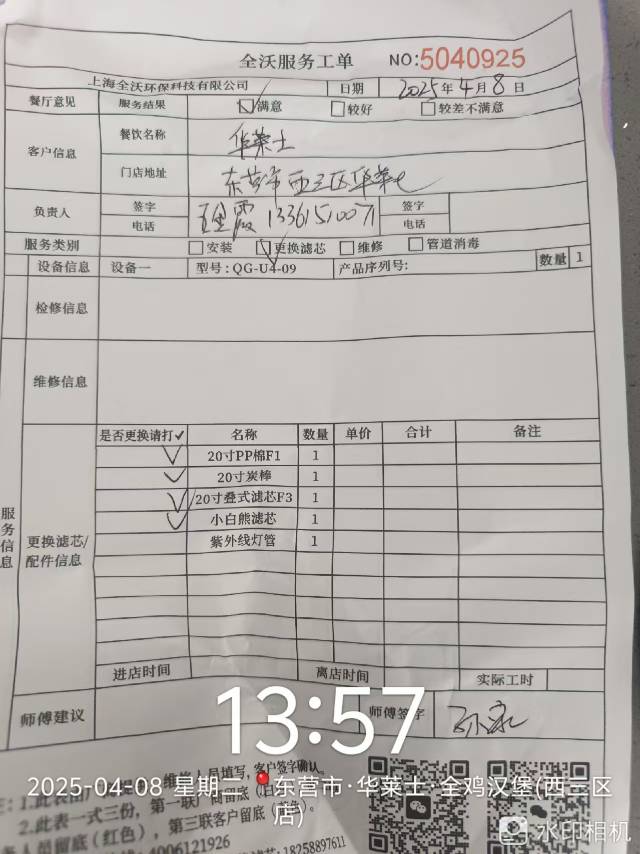 全沃服务工单 NO:5040925
上海全沃环保科技有限公司 日期 2025年4月8日
餐厅意见 服务结果 ☑满意 □较好 □较差不满意
客户信息 餐饮名称 华莱士
门店地址 东营市西三区华莱士
负责人 签字 霞 签字
电话 13361510071 电话
服务类别 □安装 ☑更换滤芯 □维修 □管道消毒
设备信息 设备一 型号:QG-U4-09 产品序列号: 数量 1
检修信息
维修信息
服务信息
更换滤芯/配件信息
是否更换请打✓ 名称 数量 单价 合计 备注
✓ 20寸PP棉F1 1
✓ 20寸炭棒 1
✓ 20寸叠式滤芯F3 1
✓ 小白熊滤芯 1
紫外线灯管 1
进店时间 离店时间 实际工时
师傅建议 师傅签字
13:57
2025-04-08 星期二 东营市·华莱士·全鸡汉堡(西三区店)
填写,客户签字确认。
2.此表一式三份,第一联
留底(白
员留底(红色),第三联客户留底
4006121926
18258897611
水印相机